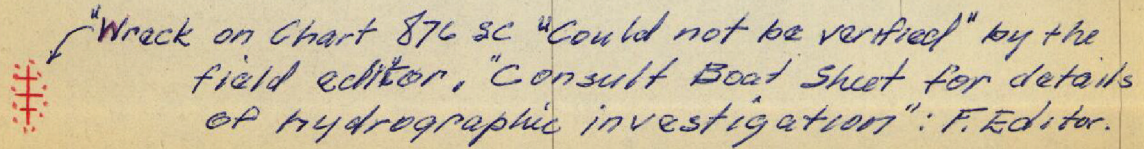 "Wreck on Chart 876 SC "Could not be verified" by the
field editor. "Consult Boat Sheet for details
of hydrographic investigation": F. Editor.